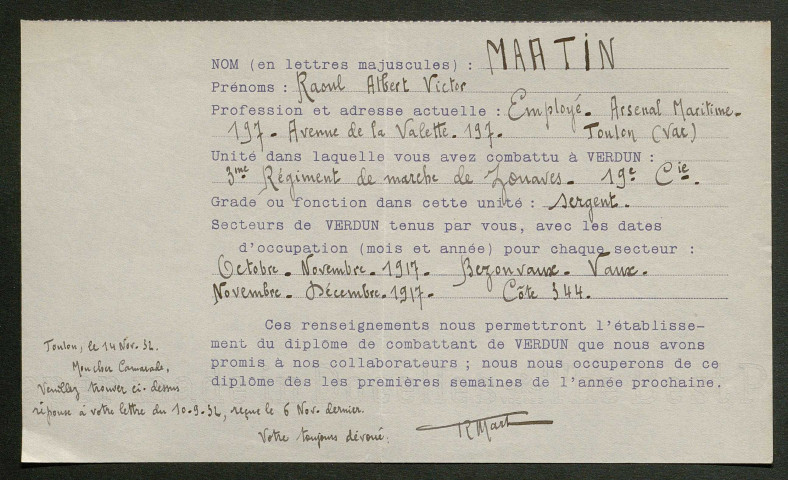 NOM (en lettres majuscules) : MARTIN
Prénoms : Raoul Albert Victor
Profession et adresse actuelle : Employé. Arsenal Maritime.
197. Avenue de la Valette. 197. Toulon (Var)
Unité dans laquelle vous avez combattu à VERDUN :
3me Régiment de marche de Zouaves. 19e Cie.
Grade ou fonction dans cette unité : Sergent.
Secteurs de VERDUN tenus par vous, avec les dates
d'occupation (mois et année) pour chaque secteur :
Octobre. Novembre. 1917. Bezonvaux. Vaux.
Novembre. Décembre. 1917. Côte 344.
Ces renseignements nous permettront l'établisse-
ment du diplome de combattant de VERDUN que nous avons
promis à nos collaborateurs ; nous nous occuperons de ce
diplôme dès les premières semaines de l'année prochaine.
Toulon, le 14 Nov. 32.
Mon cher Camarade,
Veuillez trouver ci-dessus
réponse à votre lettre du 10-9-32, reçue le 6 Nov. dernier.
Votre toujours dévoué.
RMart